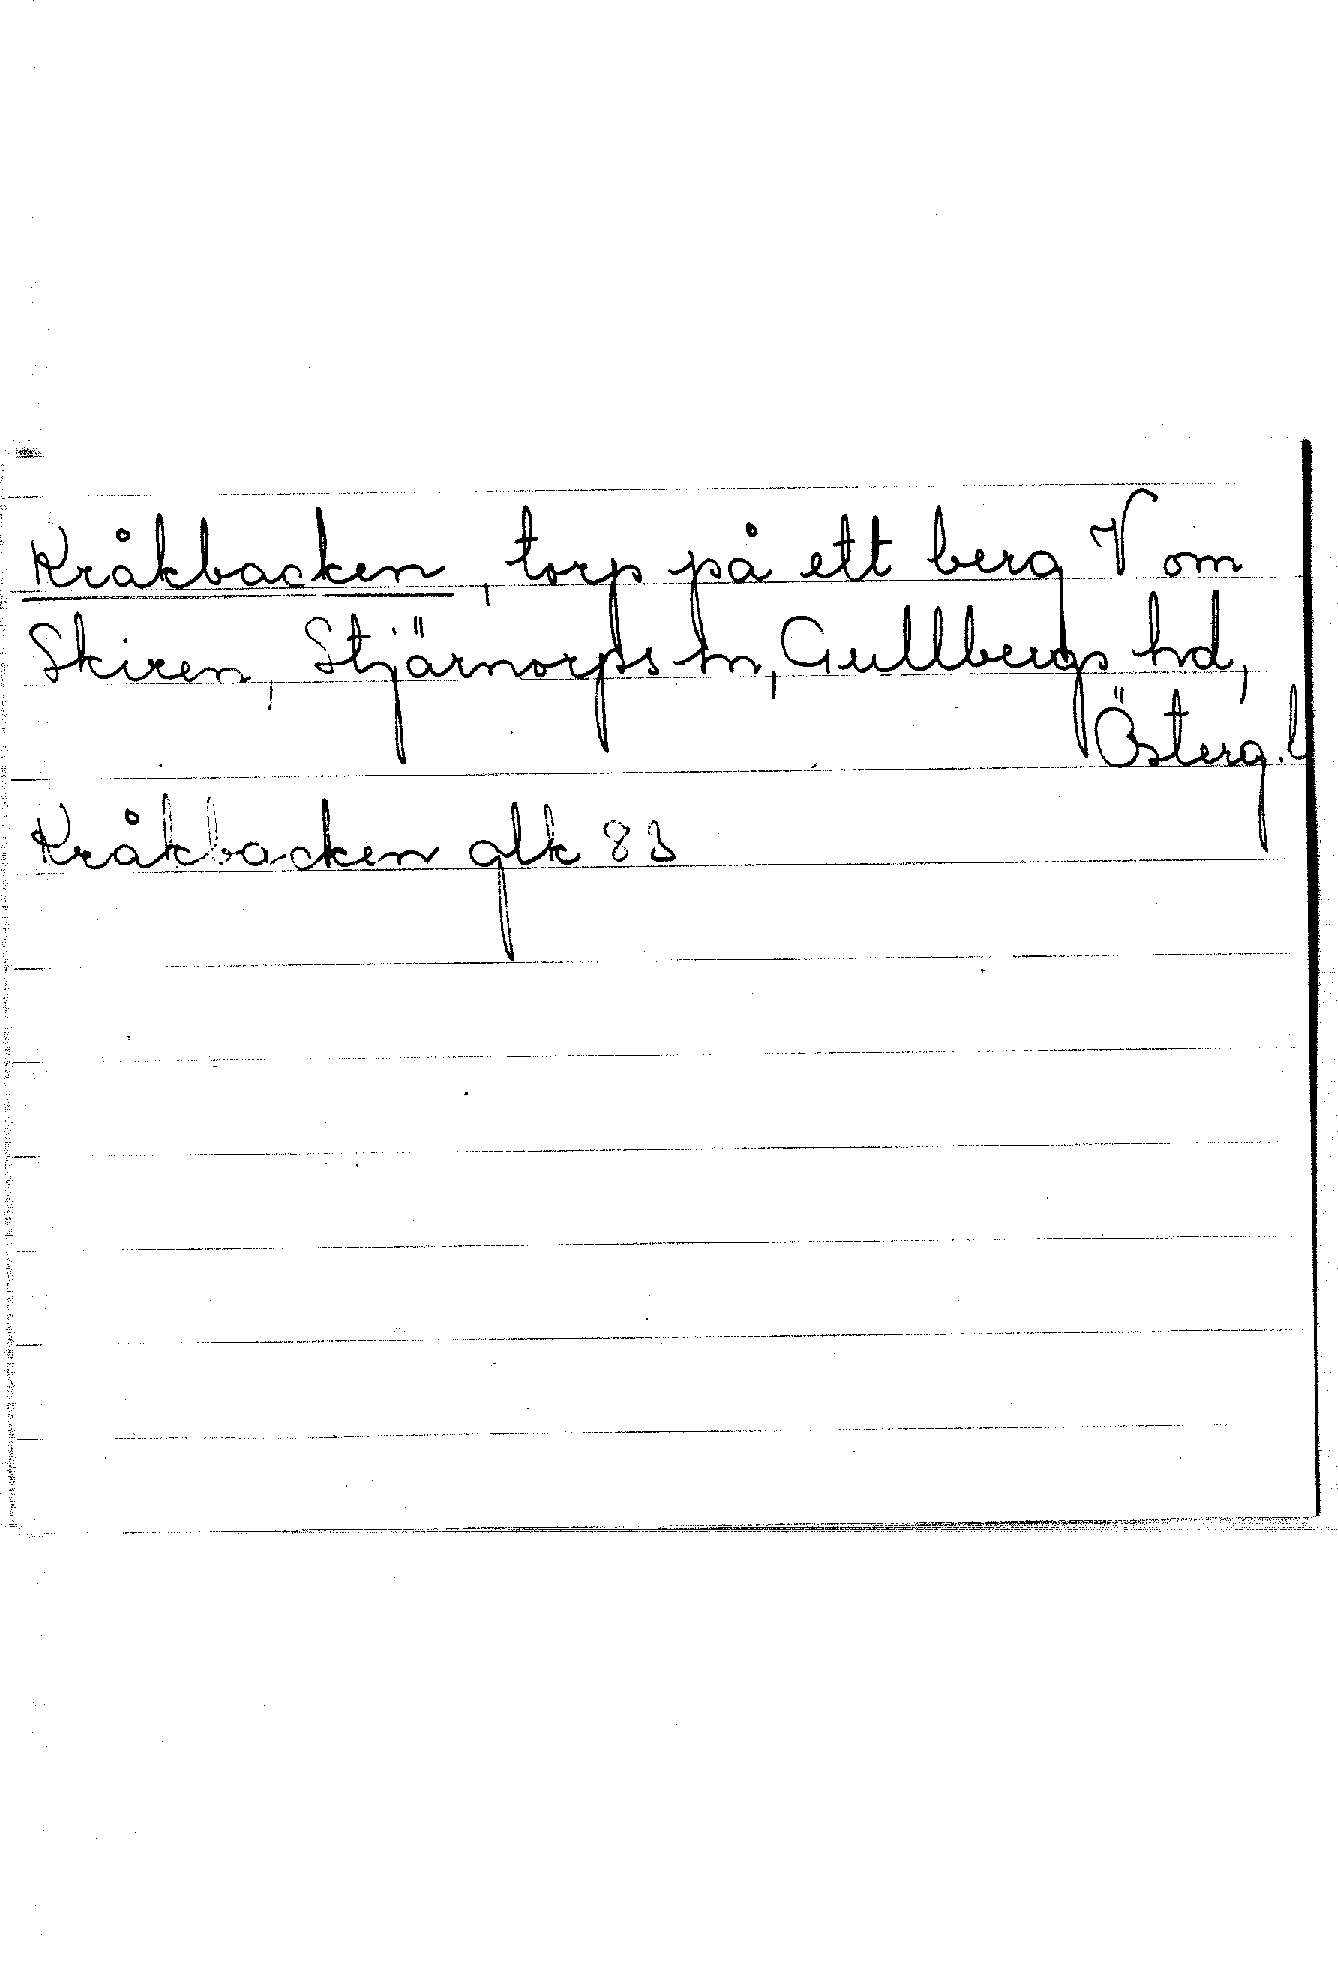 Kråkbacken, torp på ett berg V om
Skiren, Stjärnorps sn, Gullbergs hd,
Österg. l
Kråkbacken glk 83